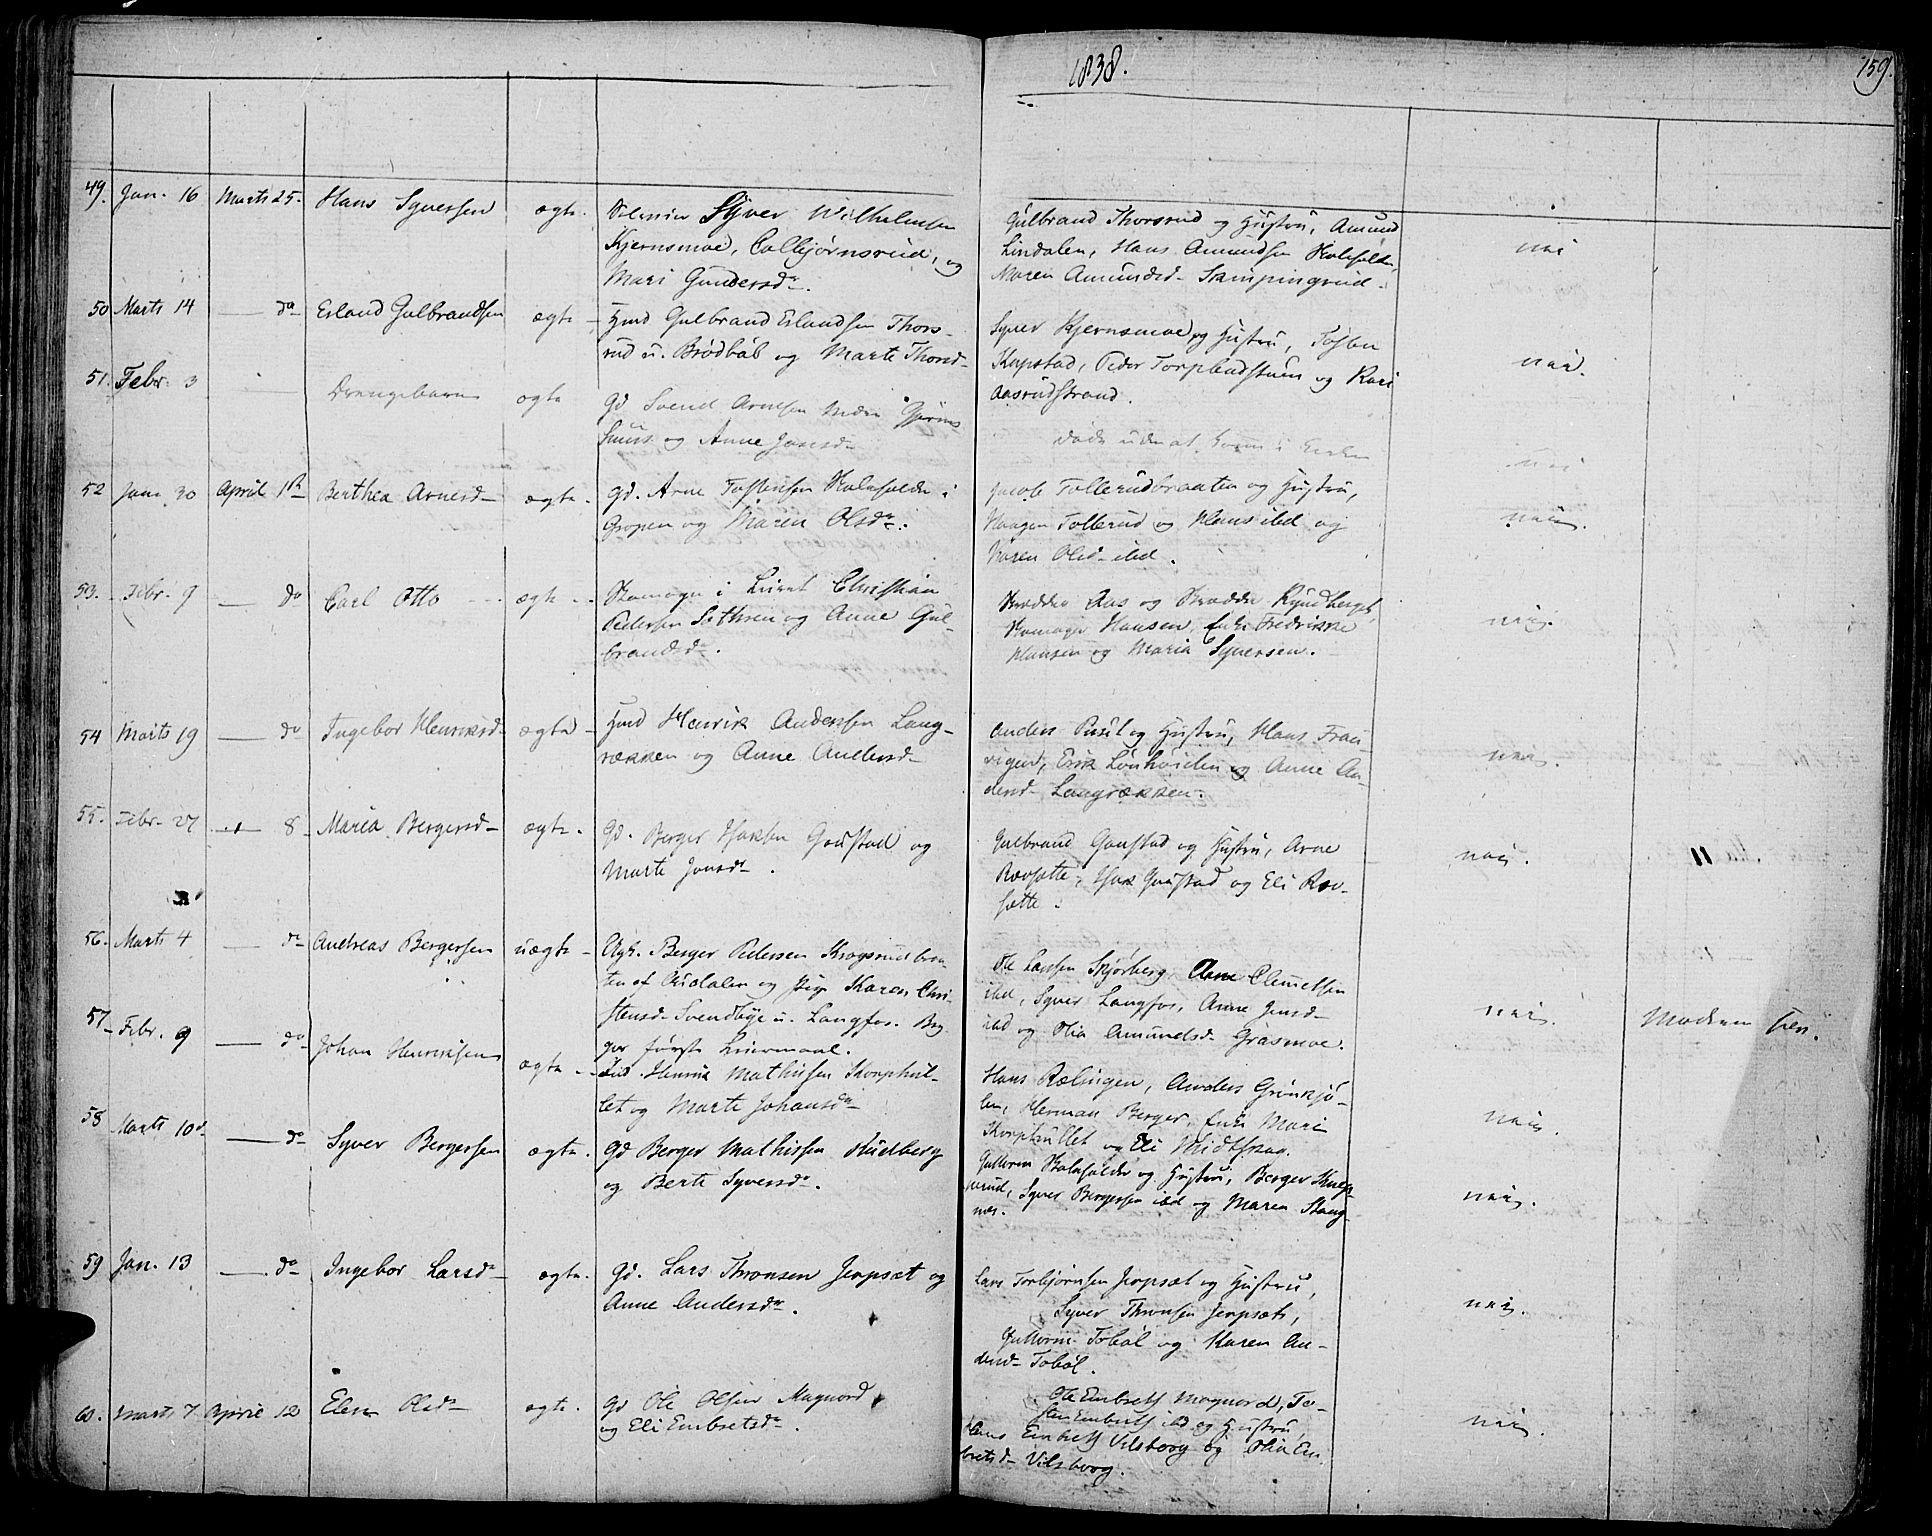 1838.
159.
49. Jan. 16 Marts 25. Hans Syversen ægte. Syver Wilhelmsen
Kjernsmoe, Colbjørnsrud, og
Mari Gundersdr.
Gulbrand Thorsrud og Hustru, Amund
Lindalen, Hans Amundsen
Maren Amundsd- Stempingrud.
nei
50 Marts 14 — do Erland Gulbrandsen ægte - Hmd Gulbrand Erlandsen Thors-
rud u. Brødbøl og Marte Thorsd-
Syver Kjernsmoe og Hustru, Tosten
Kopstad, Peder og Kari
Aasrudstrand.
nei.
51. Febr. 3 — Drengebarn ægte Gd Svend Arnesen
og Anne Jonsd-
døde uden at komme i Kirken
nei
52 Jan. 30 April 1ste Berthea Arnesd- ægte. Gd. Arne Tostensen Kolufaldet i
Gropen og Maren Olsdr.
Jacob Tollerudbraaten og Hustru,
Haagen Tollerud og Hans ibd og
Karen Olsd- ibd.
nei.
53. Febr. 9 — do Carl Otto ægte - Skomager i Lunet Christian
Pedersen Sæthren og Anne Gul-
brandsdr.
Skrædder Aas og Skrædder Ryndberget,
Skomager Hansen, Enke Fredrikke
Hansen og Maria Syversen.
nei.
54 Marts 19 — do Ingebor Henriksd- ægte - Hmd Henrik Andersen Lang-
rækken og Anne Andersd-
Anders og Hustru, Hans
Erik Lønhøiden og Anne An-
dersd- Langrækken.
nei.
55. Febr. 27 — 8 - Maria Bergersd- ægte. Gd. Berger Gaustad og
Marte Jonsdr.
Gulbrand Gaustad og Hustru, Arne
Rævsætte, Gaustad og Eli Ræv-
sætte.
nei.
11
56. Marts 4 — do Andreas Bergersen uægte - Ugk. Berger Pedersen Krogsrudbraa-
ten af Audalen og Pige Karen Chri-
stensd- Svendbye u. Langfos. Ber-
ger første Leiermaal.
Ole Larsen Skjørberg, Arne Clemetsen
ibd, Syver Langfos, Anne Jensd-
ibd og Olia Amundsd- Græsmoe.
nei.
Moderen
57 - Febr. 9 — do Johan Henriksen ægte - Henrik Mathisen Skorphul-
let og Marte Johansdr
Hans Rælingen, Anders Grønkjø-
len, Herman Berger, Enke Mari
Skorphullet og Eli Midtskog.
nei.
58 Marts 10d. — do Syver Bergersen ægte. Gd Berger Mathisen Hudberg
og Berte Syversdr.
Guttorm Kolufaldet og Hustru, Berger
Syver Bergersen ibd og Maren Stang-
næs.
nei.
59 Jan. 13 — do Ingebor Larsdr ægte. Gd. Lars Thronsen Jerpsæt og
Anne Andersdr.
Lars Torbjørnsen Jerpsæt og Hustru,
Syver Thronsen Jerpsæt,
Guttorm Tobøl og Karen An-
dersd- Tobøl.
nei.
60. Marts 7 April 12 Elen Olsdr ægte. Gd Ole Olsen Magnord
og Eli Embretsdr.
Ole Embretsen Magnord, To-
sten Embretsen ibd og Hustru,
Hans Embretsen Vilsborg og Olia Em-
bretsd- Vilsborg.
nei.